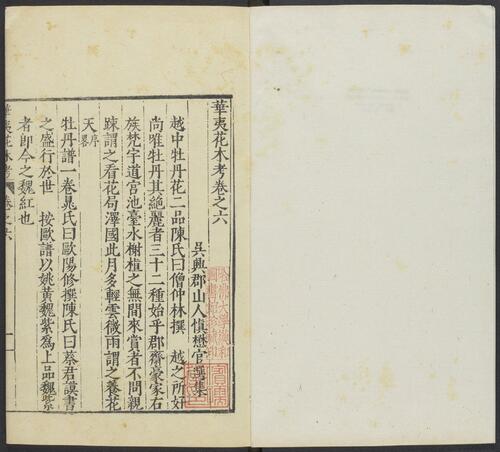 華夷花木考卷之六
吳興郡山人慎懋官選集
越中牡丹花二品陳氏曰僧仲林撰 越之所好
尚唯牡丹其絶麗者三十二種始乎郡齋豪家右
族梵宇道宮池臺水榭植之無間來賞者不問親
踈謂之看花局澤國此月多輕雲微雨謂之養花
天序畧
牡丹譜一卷晁氏曰歐陽修撰陳氏曰蔡君謨書
之盛行於世 按歐譜以姚黃魏紫爲上品魏紫
者卽今之魏紅也
華夷花木考 卷之六 一